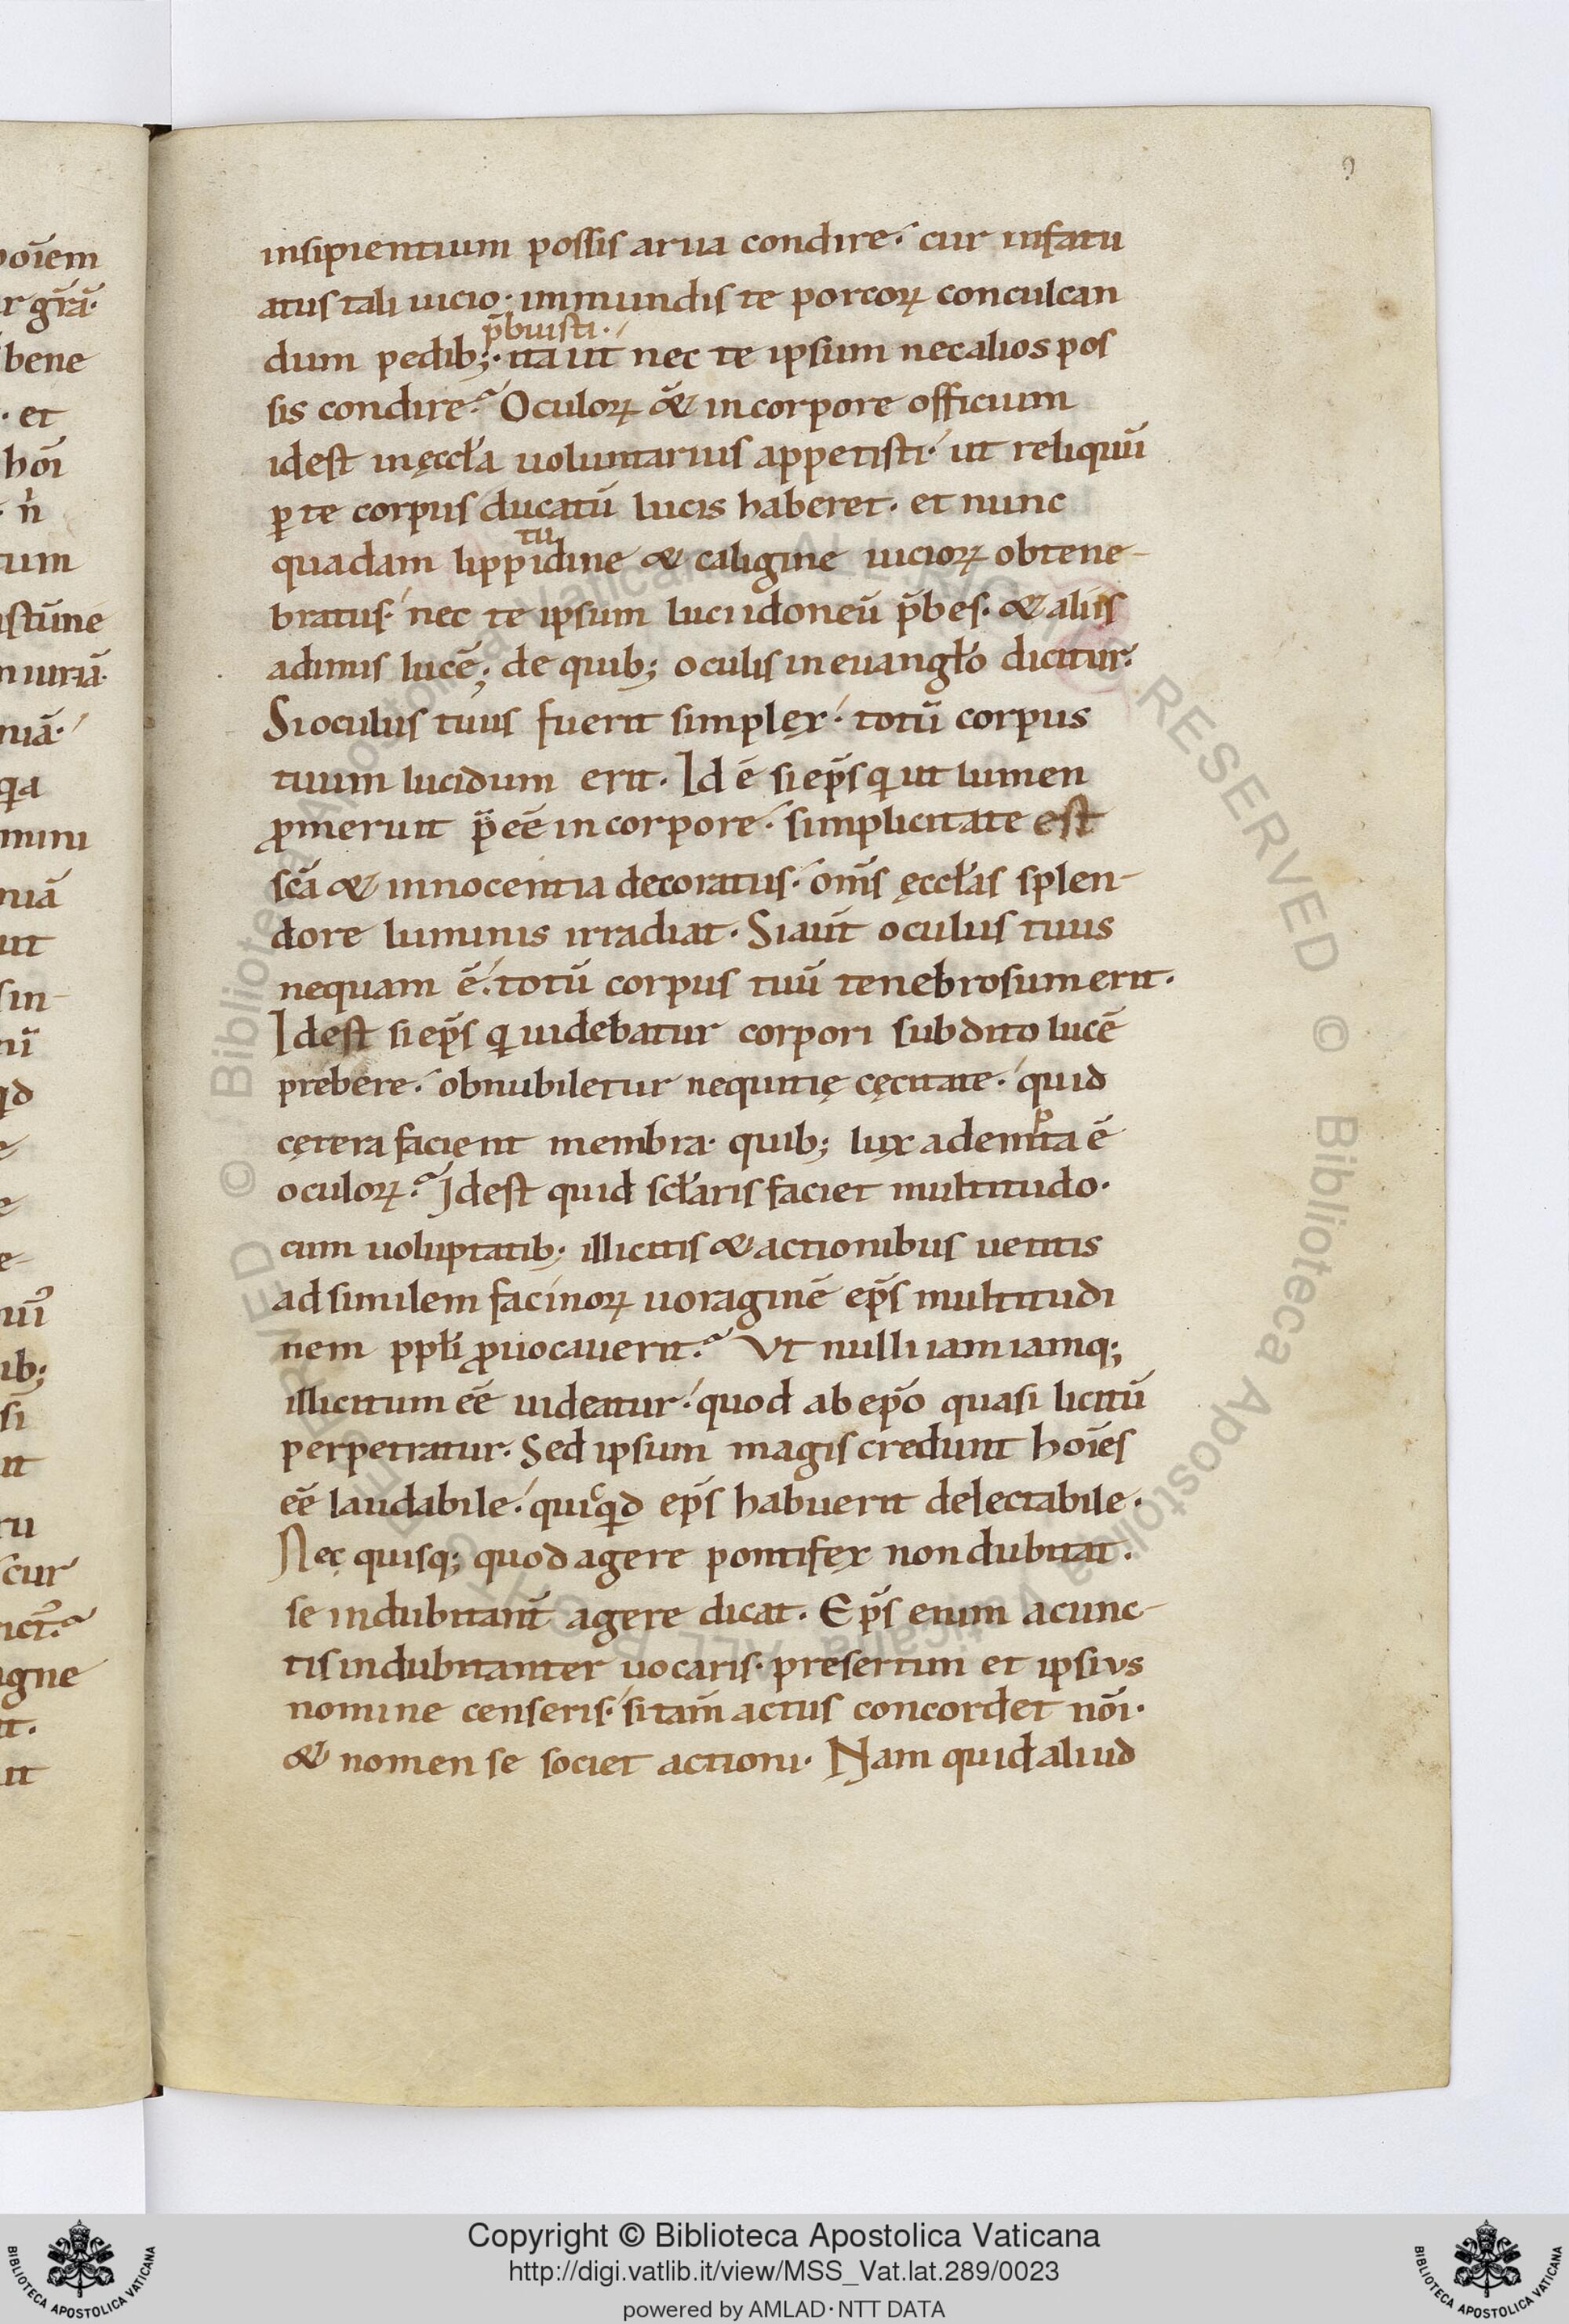 insipientium possis arua condire· cur infatu
atus tali uicio· immundis te porcoꝝ conculcan
p̄buisti·
dum pedib;· ita ut nec te ipsum nec alios pos
sis condire? Oculoꝝ & in corpore officium
idest in ęccła uoluntarius appetisti· ut reliquū
ꝑ te corpus ducatū lucis haberet· et nunc
tu
quadam lippidine & caligine uicioꝝ obtene-
bratus· nec te ipsum luci idoneū p̄bes· & aliis
adimis lucē; de quib; oculis in euangło dicitur·
Si oculus tuus fuerit simplex· totū corpus
tuum lucidum erit· Id ē si ep̄s qi ut lumen
ꝓmeruit p̄ eē in corpore· simplicitate est
scā & innocentia decoratus· om̄s ęccłas splen-
dore luminis irradiat· Si aut̄ oculus tuus
nequam ē· totū corpus tuū tenebrosum erit·
Idest si ep̄s qi uidebatur corpori subdito lucē
prebere· obnubiletur nequitię cęcitate· quid
cętera facient membra· quib; lux adempta ē
oculoꝝ? Idest quid scłaris faciet multitudo·
cum uoluptatib; illicitis & actionibus uetitis
ad similem facinoꝝ uoraginē ep̄s multitudi
nem ppłi ꝓuocauerit? Vt nulli iam iamq;
illicitum eē uideatur· quod ab ep̄o quasi licitū
perpetratur· Sed ipsum magis credunt hoīes
eē laudabile· quicqid ep̄s habuerit delectabile·
Nec quisq; quod agere pontifex non dubitat·
se indubitant̄ agere dicat· Ep̄s enim a cunc-
tis indubitanter uocaris· presertim et ipsius
nomine censeris· si tam̄ actus concordet nōi·
& nomen se societ actioni· Nam quid aliud
Copyright © Biblioteca Apostolica Vaticana
http://digi.vatlib.it/view/MSS_Vat.lat.289/0023
powered by AMLAD·NTT DATA
BIBLIOTECA APOSTOLICA VATICANA
BIBLIOTECA APOSTOLICA VATICANA